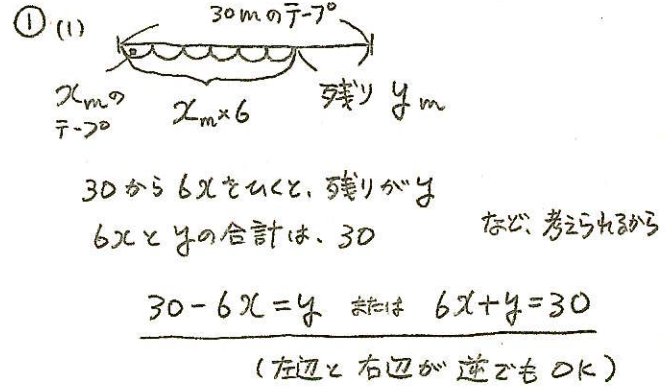 ① (1)
30mのテープ
xmの
テープ
xm×6
残り ym
30から6xをひくと、残りがy
6xとyの合計は、30
など、考えられるから
30-6x=y または 6x+y=30
(左辺と右辺が逆でもOK)